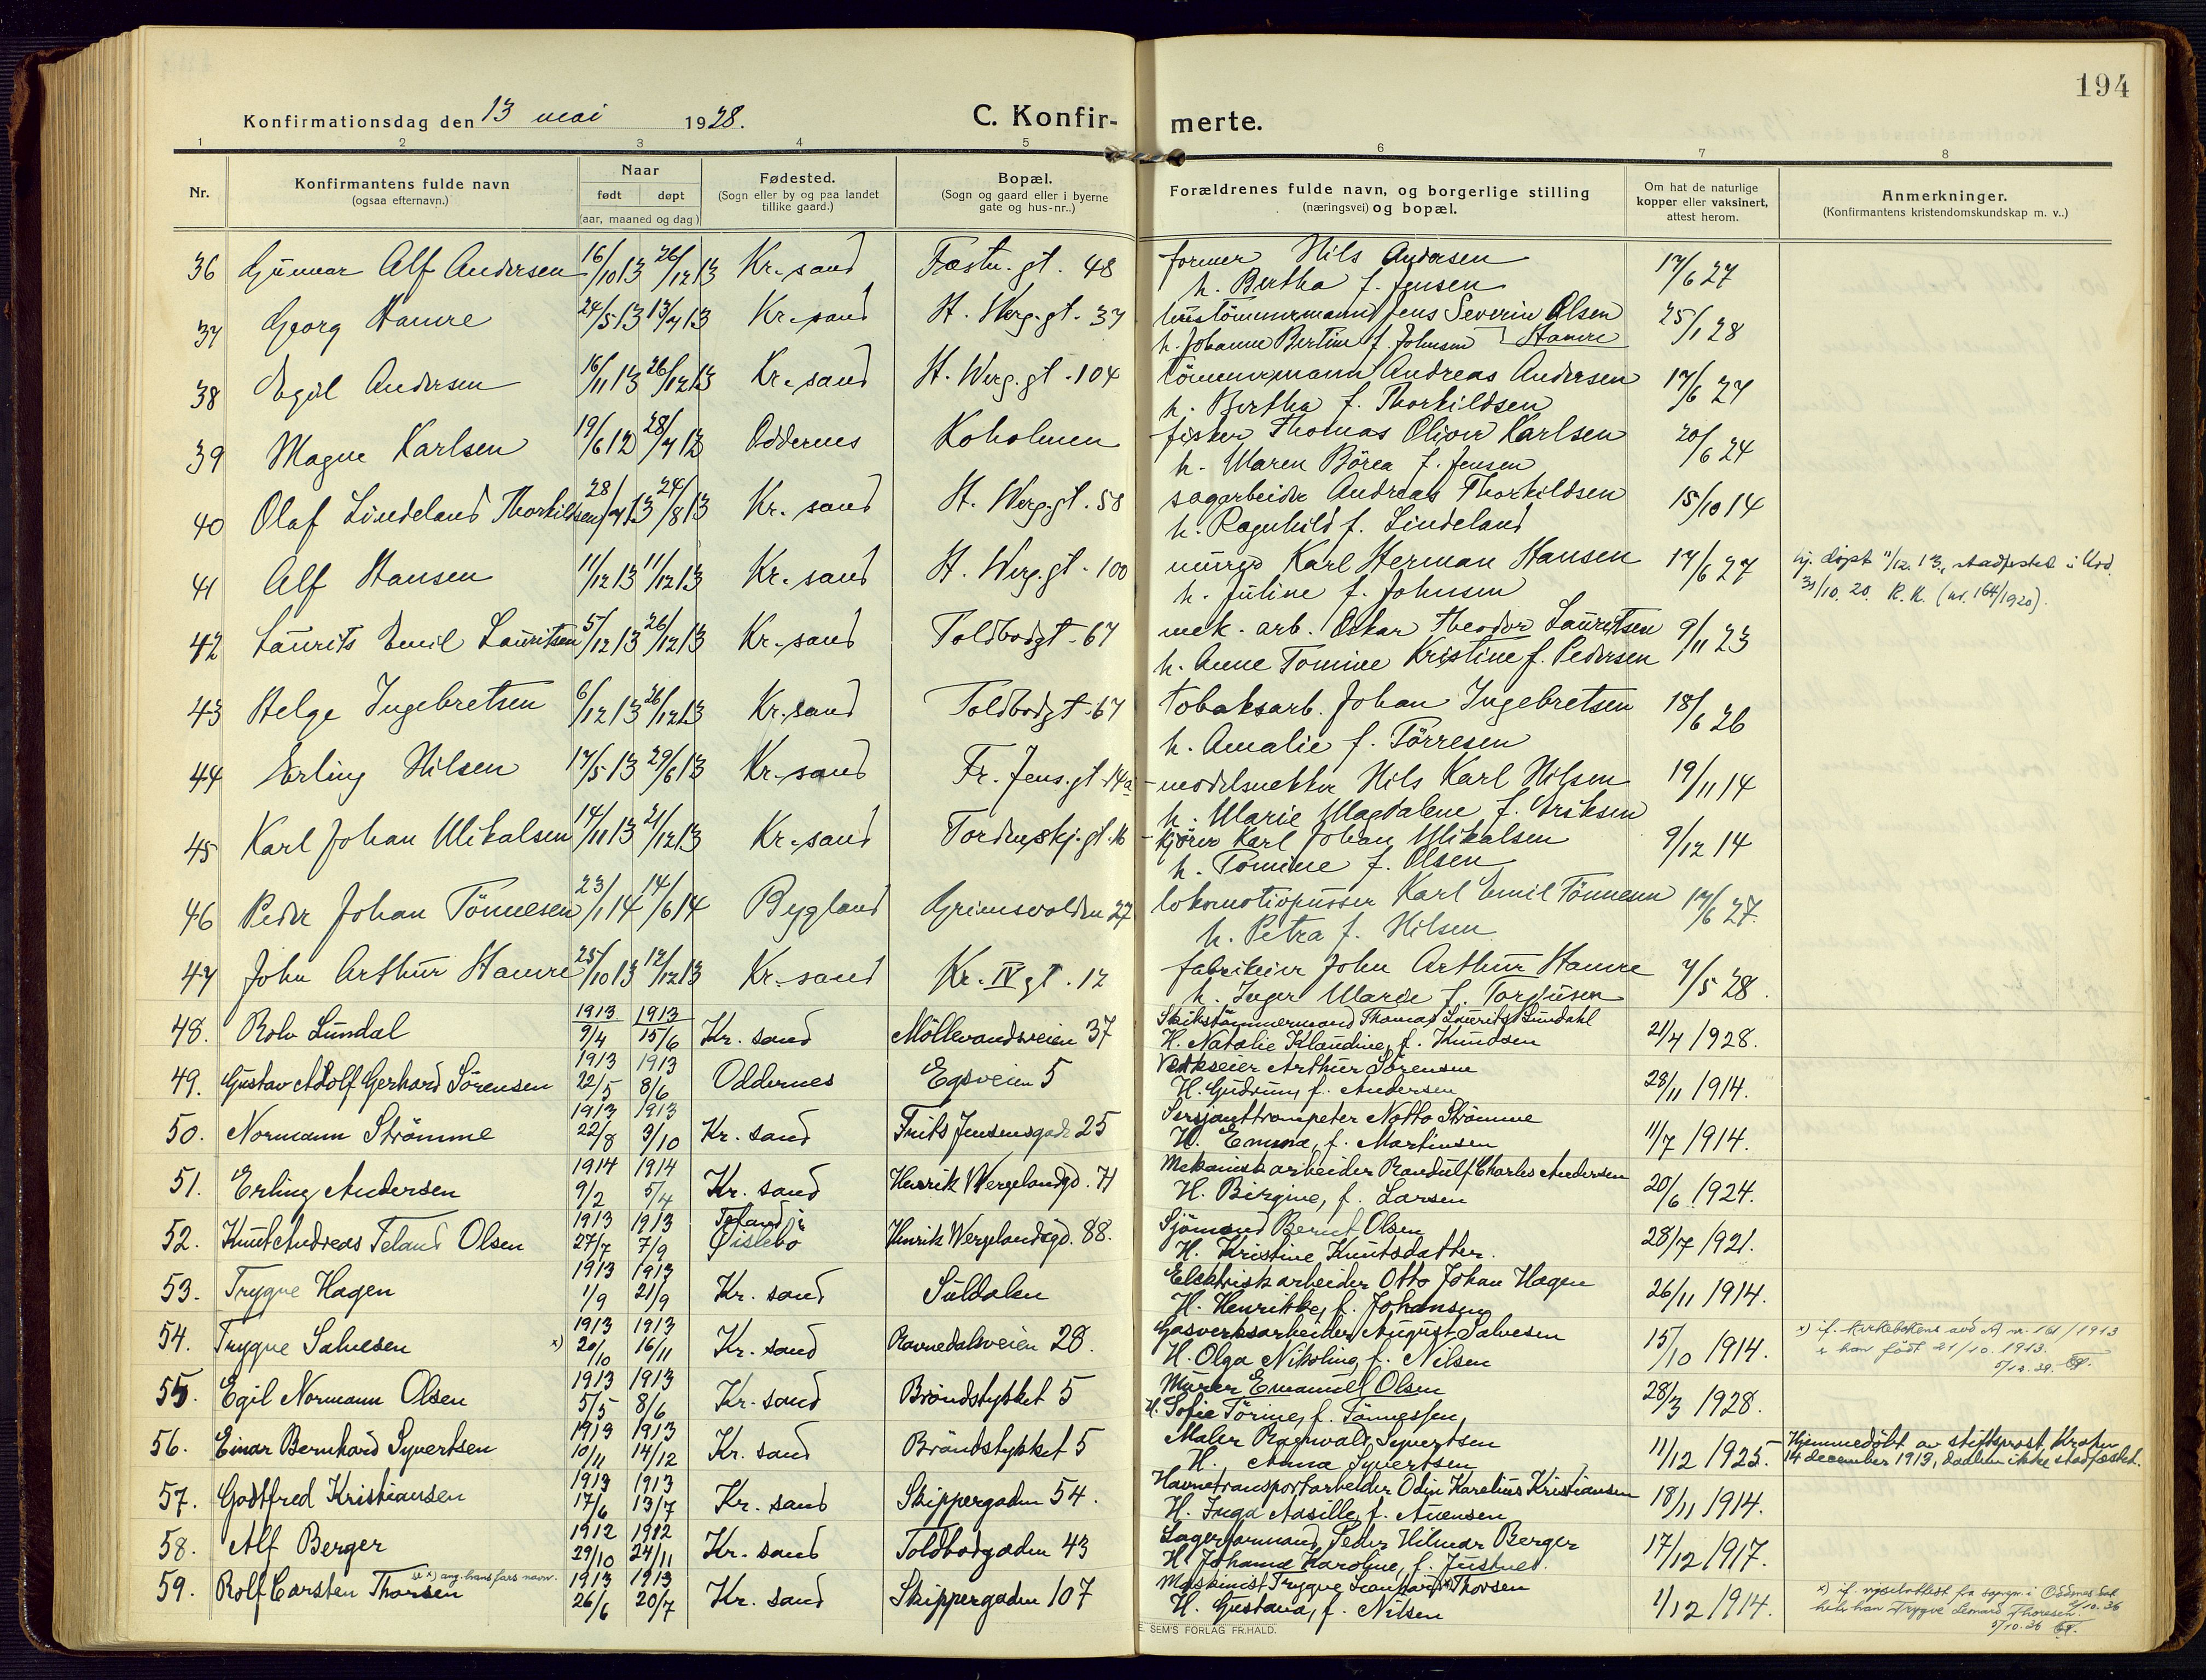 194
Konfirmationsdag den 13 mai 1928.
C. Konfir- merte.
1 2 3 4 5 6 7 8
Nr.
Konfirmantens fulde navn
(ogsaa efternavn.)
Naar
født døpt
(aar, maaned og dag)
Fødested.
(Sogn eller by og paa landet
tillike gaard.)
Bopæl.
(Sogn og gaard eller i byerne
gate og hus-nr..)
Forældrenes fulde navn, og borgerlige stilling
(næringsvei) og bopæl.
Om hat de naturlige
kopper eller vaksinert,
attest herom.
Anmerkninger.
(Konfirmantens kristendomskundskap m. v..)
36 Gunnar Alf Andersen 16/10 13 26/12 13 Kr.sand Festn. gt. 48 former Nils Andersen 17/6 27
h. Bertha f. Jensen
37 Georg Hamre 24/5 13 13/7 13 Kr.sand H. Werg. gt. 37 hustömmermand Jens Severin Olsen 25/1 28
h. Johanne Bertine f. Johnsen Hamre
38 Egil Andersen 16/11 13 26/12 13 Kr.sand H. Werg. gt. 104 tömmermann Andreas Andersen 17/6 27
h. Bertha f. Thorkildsen
39 Magne Karlsen 19/6 12 28/7 12 Oddernes Koholmen fisker Thomas Oliver Karlsen 20/6 24
h. Maren Börea f. Jensen
40 Olaf Lindeland Thorkildsen 28/7 13 24/8 13 Kr. sand H. Werg. gt. 58 sagarbeider Andreas Thorkildsen 15/10 14
h. Ragnhild f. Lindeland
41 Alf Hansen 11/12 13 11/12 13 Kr. sand H. Werg. gt. 100 murer Karl Herman Hansen 17/6 27 hj. döpt 11/12 13, stadfestet i
h. Juline f. Johnsen 31/10. 20. K. K. (nr. 164/1920).
42 Laurits Emil Lauritsen 5/12 13 26/12 13 Kr. sand Toldbodgt. 67 mek. arb. Oskar Theodor Lauritsen 9/11 23
h. Anne Tomine Kristine f. Pedersen
43 Helge Ingebretsen 6/12 13 26/12 13 Kr. sand Toldbodgt. 67 tobaksarb. Johan Ingebretsen 18/6 26
h. Amalie f. Törresen
44 Erling Nilsen 17/5 13 29/6 13 Kr. sand Fr. Jens. gt. 14a modelsnekker Nils Karl Nilsen 19/11 14
h. Marie Magdalene f. Eriksen
45 Karl Johan Mikalsen 14/11 13 21/12 13 Kr. sand Tordenskj. gt. 16 kjörer Karl Johan Mikalsen 9/12 14
h. Tomine f. Olsen
46 Peder Johan Tönnesen 23/1 14 14/6 14 Bygland Grimsvolden 27 lokomotivpusser Karl Emil Tönnesen 17/6 27.
h. Petra f. Nilsen
47 John Arthur Hamre 25/10 13 12/12 13 Kr. sand Kr. IV gt. 12 fabrikeier John Arthur Hamre 7/5 28.
h. Inger Marie f. Torjusen
48. Rolv Lundal 1913 9/4 1913 15/6 Kr. sand Möllevandsveien 37 Skibstömmermand Thomas Laurits Lundahl 21/4 1928.
H. Natalie Klaudine, f. Knudsen
49. Gustav Adolf Gerhard Sörensen 1913 22/5 1913 8/6 Oddernes Egsveien 5 Verkseier Arthur Sörensen 28/11 1914.
H. Gudrun, f. Andersen
50. Normann Strömme 1913 22/8 1913 9/10 Kr. sand Frits Jensensgade 25 Sersjanttrompeter Notto Strömme 11/7 1914.
H. Emma, f. Martinsen
51. Erling Andersen 1914 9/2 1914 5/4 Kr. sand Henrik Wergelandgd. 71 Mekanisk arbeider Randulf Charles Andersen 20/6 1924.
H. Birgine, f. Larsen
52. Knut Andreas Feland Olsen 1913 27/7 1913 7/9 i Øislebö Henrik Wergelandsgd. 88. Sjömand Bernt Olsen 28/7 1921.
H. Kristine Knutsdatter.
53. Trygve Hagen 1913 1/9 1913 21/9 Kr. sand Suldalen Elektrisk arbeider Otto Johan Hagen 26/11 1914.
H. Henrikke, f. Johansen
54. Trygve Salvesen x) 1913 20/10 1913 16/11 Kr. sand Ravnedalsveien 28. Gasverksarbeider August Salvesen 15/10 1914. x) if. kirkebokens avd A) nr. 161/1913
H. Olga Nikoline, f. Nilsen er han född 21/10. 1913.
5/12. 39.
55. Egil Normann Olsen 1913 5/5 1913 8/6 Kr. sand Bröndstykket 5 Murer Emanuel Olsen 28/3 1928.
H. Sofie Törine, f. Tönnessen,
56. Einar Bernhard Syvertsen 1913 10/11 1913 14/12 Kr. sand Bröndstykket 5 Maler Ragnvald Syvertsen 11/12 1925. Hjemmedöbt av stiftsprost Krohn
H. Anna Syvertsen 14 december 1913, daaben ikke stadfæstet.
57. Godtfred Kristiansen 1913 17/6 1913 13/7 Kr. sand Skippergaden 54. Havnetransportarbeider Odin Karelius Kristiansen 18/11 1914.
H. Inga Aasille, f. Auensen
58. Alf Berger 1912 29/10 1912 24/11 Kr. sand Toldbodgaden 43 Lagerformand Peder Hilmar Berger 17/12 1917.
H. Johanna Karoline, f. Justnes
se x) ang. hans fars navn.
59. Rolf Carsten Thorsen 1913 26/6 1913 20/7 Kr. sand Skippergaden 107 Maskinist Trygve Leonhard x) Thorsen 1/12 1914. x) if. vigselsattest fra sogepr. i Oddernes dat.
H. Gustava, f. Nilsen 2/10. 36 heter han Trygve Leonard Thoresen.
5/10. 36
E. SEM'S FORLAG FR.HALD.